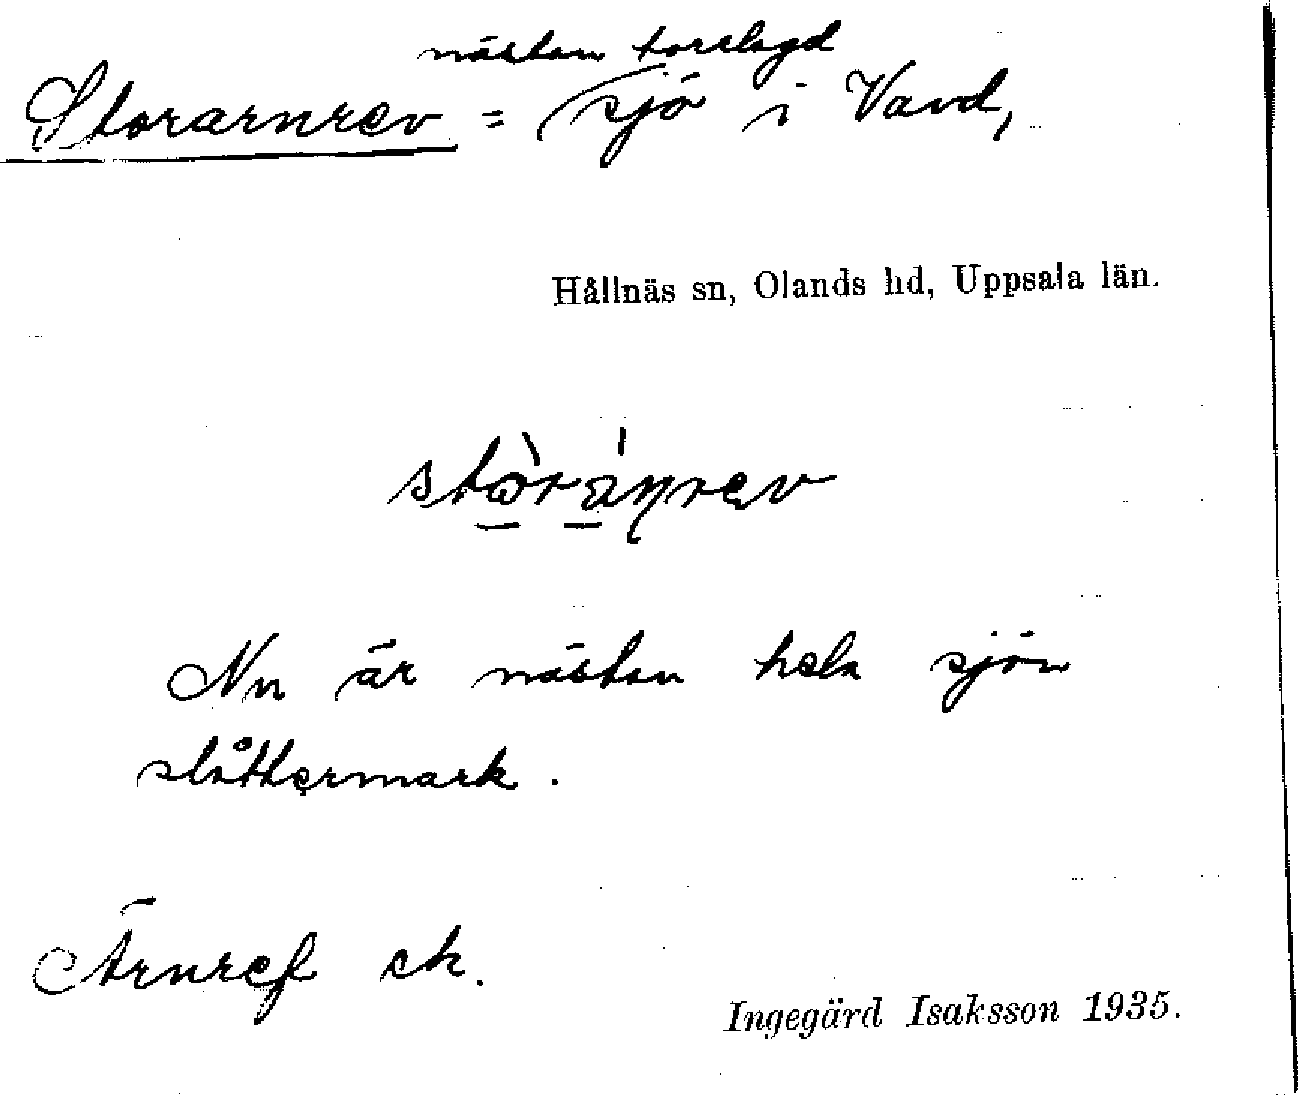 nästan torrlagd
Storarnrev = sjö i Vavd,
Hållnäs sn, Olands hd, Uppsala län.
Nu är nästan hela sjön
slåttermark.
Ärnref ek.
Ingegärd Isaksson 1935.